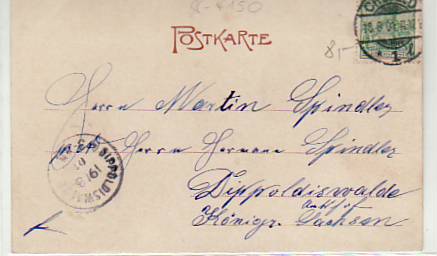 8-4150
POSTKARTE
8,-
1
Herrn Martin Spindler
Herrn Hermann Spindler
Dippoldiswalde
Königr. Sachsen
DIPPOLDISWALDE